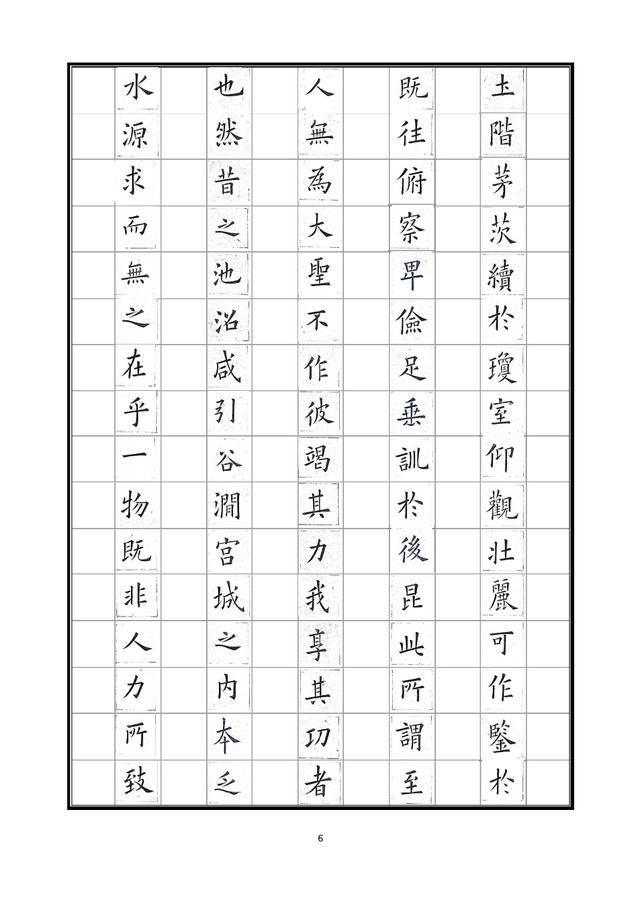 土階茅茨續於瓊室仰觀壯麗可作鑒於
既往俯察卑儉足垂訓於後昆此所謂至
人無為大聖不作彼竭其力我享其功者
也然昔之池沼咸引谷澗宮城之內本乏
水源求而無之在乎一物既非人力所致
6